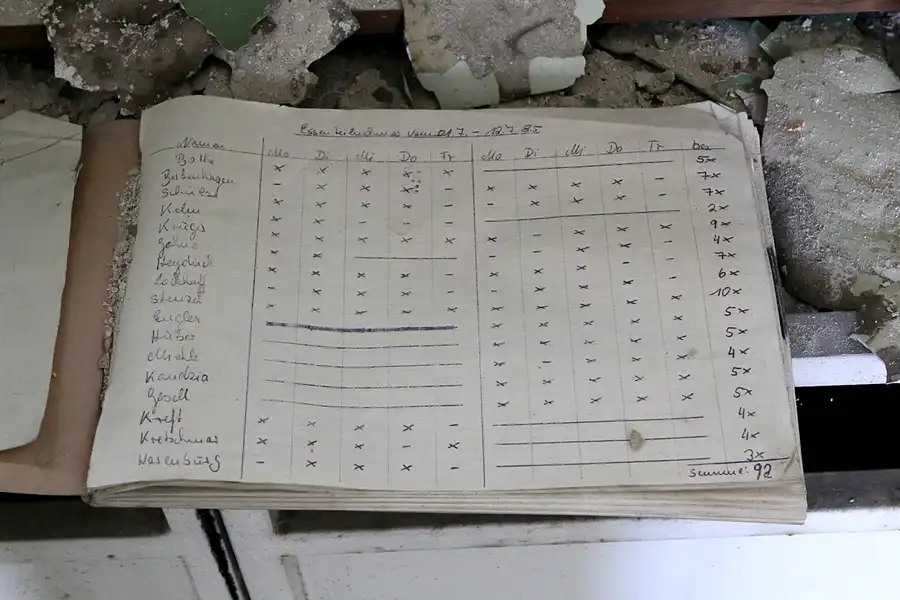 Essenteilnehmer vom 01.7. - 12.7.85
Name Mo Di Mi Do Fr Mo Di Mi Do Fr
x x x x x 5x
Babenhagen - x x x - x x x x - 7x
x x x x - - x x x - 7x
Kelm x x - - - 2x
Krüger x x x x x x - x x x 9x
x x - - x x - 4x
Heydeck x x x x - - x x x - 7x
- x x x - - x x x - 6x
Stenzel x x x x x x x x x x 10x
Engler x x x x x 5x
Hüber x x x x x 5x
x - x x x 4x
Kaudzia x x x x x 5x
Gesell x x x x x 5x
Kreft x x x x - 4x
Kretschmar x x x - x 4x
Warenburg - x x x - 3x
Summe: 92